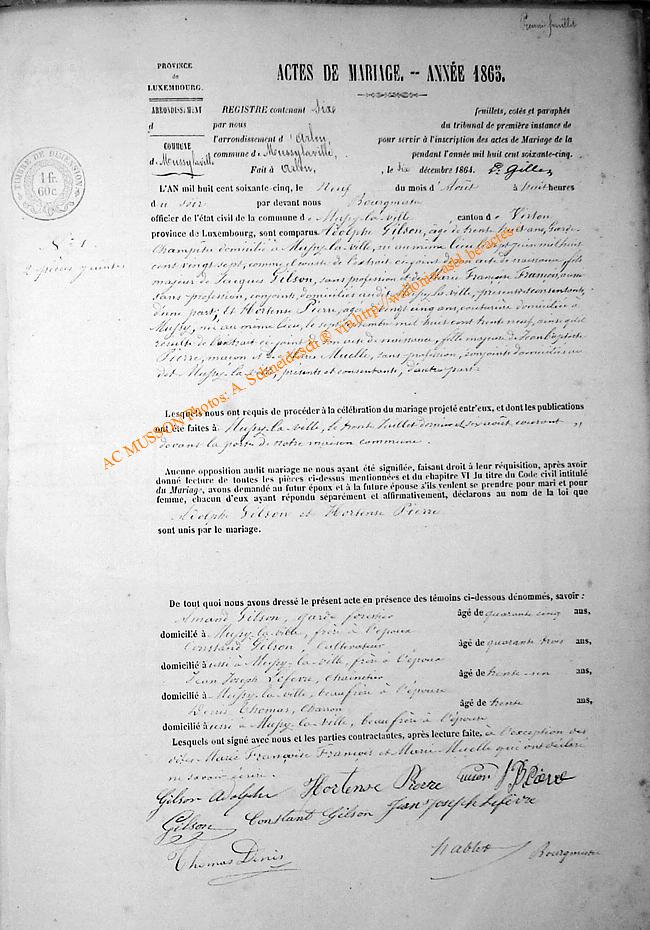 Premier feuillet
PROVINCE
de
LUXEMBOURG.
ACTES DE MARIAGE. -- ANNÉE 1865.
ARRONDISSEMENT
d
COMMUNE
d Mussy-la-ville
REGISTRE contenant Six feuillets, cotés et paraphés
par nous du tribunal de première instance de
l'arrondissement d'Arlon, pour servir à l'inscription des actes de Mariage de la
commune de Mussy-la-ville, pendant l'année mil huit cent soixante-cinq.
Fait à Arlon, le six décembre 1864.
TIMBRE DE DIMENSION
1 fr.
60c.
N° 1.
L'AN mil huit cent soixante-cinq, le Neuf du mois d'Août à huit heures
du soir par devant nous Bourgmestre
officier de l'état civil de la commune de Mussy-la-ville, canton de Virton
province de Luxembourg, sont comparus Adolphe Gilson, âgé de trente huit ans, Garde
Champêtre domicilié à Mussy-la-ville, né au même lieu le sept juin mil huit
cent vingt sept, comme il conste de l'extrait ci-joint de son acte de naissance, fils
majeur de Jacques Gilson, sans profession et de Marie Françoise François, aussi
sans profession, conjoints, domiciliés audit Mussy-la-ville, présents et consentants,
d'une part; Et Hortense Pierre, âgée de vingt cinq ans, couturière domiciliée à
Mussy, née au même lieu, le sept mil huit cent trente neuf, ainsi qu'il
résulte de l'extrait ci-joint de son acte de naissance, fille majeure de Jean Baptiste
Pierre, maçon et de Marie Muelle, sans profession, conjoints domiciliés au
dit Mussy-la-ville, présents et consentants, d'autre part.
Lesquels nous ont requis de procéder à la célébration du mariage projeté entr'eux, et dont les publications
ont été faites à Mussy-la-ville, le trente Juillet dernier et six août courant
devant la porte de notre maison commune.
Aucune opposition audit mariage ne nous ayant été signifiée, faisant droit à leur réquisition, après avoir
donné lecture de toutes les pièces ci-dessus mentionnées et du chapitre VI du titre du Code civil intitulé
du Mariage, avons demandé au futur époux et à la future épouse s'ils veulent se prendre pour mari et pour
femme, chacun d'eux ayant répondu séparément et affirmativement, déclarons au nom de la loi que
Adolphe Gilson et Hortense Pierre
sont unis par le mariage.
De tout quoi nous avons dressé le présent acte en présence des témoins ci-dessous dénommés, savoir :
Amand Gilson, garde forestier âgé de quarante cinq ans,
domicilié à Mussy-la-ville, frère à l'époux
Constant Gilson, Cultivateur âgé de quarante trois ans,
domicilié aussi à Mussy-la-ville, frère à l'époux
Jean Joseph Lefèvre, âgé de trente-un ans,
domicilié à Mussy-la-ville, beaufrère à l'épouse
Denis Thomas, Charron âgé de trente ans,
domicilié aussi à Mussy-la-ville, beaufrère à l'épouse
Lesquels ont signé avec nous et les parties contractantes, après lecture faite, à l'exception des
dites Marie Françoise François et Marie Muelle qui ont déclaré
ne savoir écrire.
Gilson Adolphe Hortense Pierre
Gilson Constant Gilson Jean Joseph Lefèvre
Thomas Denis Bourgmestre
AC MUSSON Photos: A. Schneidesch @ via http://wallonia-asbl.be/actes